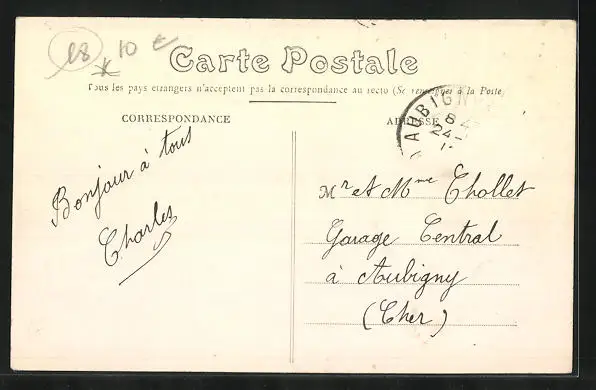 18
10 €
Carte Postale
Tous les pays étrangers n'acceptent pas la correspondance au recto (Se renseigner à la Poste
CORRESPONDANCE
ADRESSE
AUBIGNY
8
24
Bonjour à tous
Charles
Mr et Mme Chollet
Garage Central
à Aubigny
(Cher)